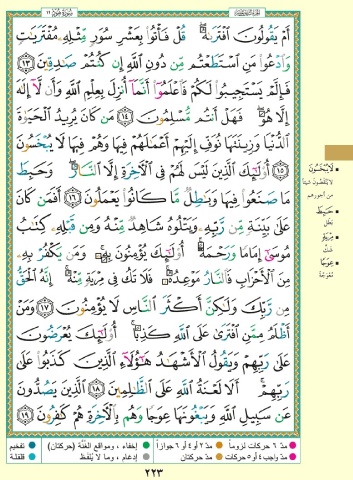 سُورَةُ هُودٍ ١١
أَمْ يَقُولُونَ ٱفْتَرَىٰهُ ۖ قُلْ فَأْتُوا۟ بِعَشْرِ سُوَرٍ مِّثْلِهِۦ مُفْتَرَيَٰتٍ
وَٱدْعُوا۟ مَنِ ٱسْتَطَعْتُم مِّن دُونِ ٱللَّهِ إِن كُنتُمْ صَٰدِقِينَ ١٣
فَإِلَّمْ يَسْتَجِيبُوا۟ لَكُمْ فَٱعْلَمُوٓا۟ أَنَّمَآ أُنزِلَ بِعِلْمِ ٱللَّهِ وَأَن لَّآ إِلَٰهَ
إِلَّا هُوَ ۖ فَهَلْ أَنتُم مُّسْلِمُونَ ١٤ مَن كَانَ يُرِيدُ ٱلْحَيَوٰةَ
ٱلدُّنْيَا وَزِينَتَهَا نُوَفِّ إِلَيْهِمْ أَعْمَٰلَهُمْ فِيهَا وَهُمْ فِيهَا لَا يُبْخَسُونَ
١٥ أُو۟لَٰٓئِكَ ٱلَّذِينَ لَيْسَ لَهُمْ فِى ٱلْءَاخِرَةِ إِلَّا ٱلنَّارُ ۖ وَحَبِطَ
مَا صَنَعُوا۟ فِيهَا وَبَٰطِلٌ مَّا كَانُوا۟ يَعْمَلُونَ ١٦ أَفَمَن كَانَ
عَلَىٰ بَيِّنَةٍ مِّن رَّبِّهِۦ وَيَتْلُوهُ شَاهِدٌ مِّنْهُ وَمِن قَبْلِهِۦ كِتَٰبُ
مُوسَىٰٓ إِمَامًا وَرَحْمَةً ۚ أُو۟لَٰٓئِكَ يُؤْمِنُونَ بِهِۦ ۚ وَمَن يَكْفُرْ بِهِۦ
مِنَ ٱلْأَحْزَابِ فَٱلنَّارُ مَوْعِدُهُۥ ۚ فَلَا تَكُ فِى مِرْيَةٍ مِّنْهُ ۚ إِنَّهُ ٱلْحَقُّ
مِن رَّبِّكَ وَلَٰكِنَّ أَكْثَرَ ٱلنَّاسِ لَا يُؤْمِنُونَ ١٧ وَمَنْ
أَظْلَمُ مِمَّنِ ٱفْتَرَىٰ عَلَى ٱللَّهِ كَذِبًا ۚ أُو۟لَٰٓئِكَ يُعْرَضُونَ
عَلَىٰ رَبِّهِمْ وَيَقُولُ ٱلْأَشْهَٰدُ هَٰٓؤُلَآءِ ٱلَّذِينَ كَذَبُوا۟ عَلَىٰ
رَبِّهِمْ ۚ أَلَا لَعْنَةُ ٱللَّهِ عَلَى ٱلظَّٰلِمِينَ ١٨ ٱلَّذِينَ يَصُدُّونَ
عَن سَبِيلِ ٱللَّهِ وَيَبْغُونَهَا عِوَجًا وَهُم بِٱلْءَاخِرَةِ هُمْ كَٰفِرُونَ ١٩
لَا يُبْخَسُونَ
لا يُنْقَصُونَ شيئاً
من أجورهم
حَبِطَ
بَطَلَ
مِرْيَةٍ
شَكٍّ
عِوَجًا
مُعْوَجَّةً
مدّ ٦ حركات لزوماً
مدّ ٢ أو ٤ أو ٦ جوازاً
إخفاء، ومواقع الغُنَّة (حركتان)
تفخيم
مدّ واجب ٤ أو ٥ حركات
مدّ حركتان
إدغام، وما لا يُلفظ
قلقلة
٢٢٣